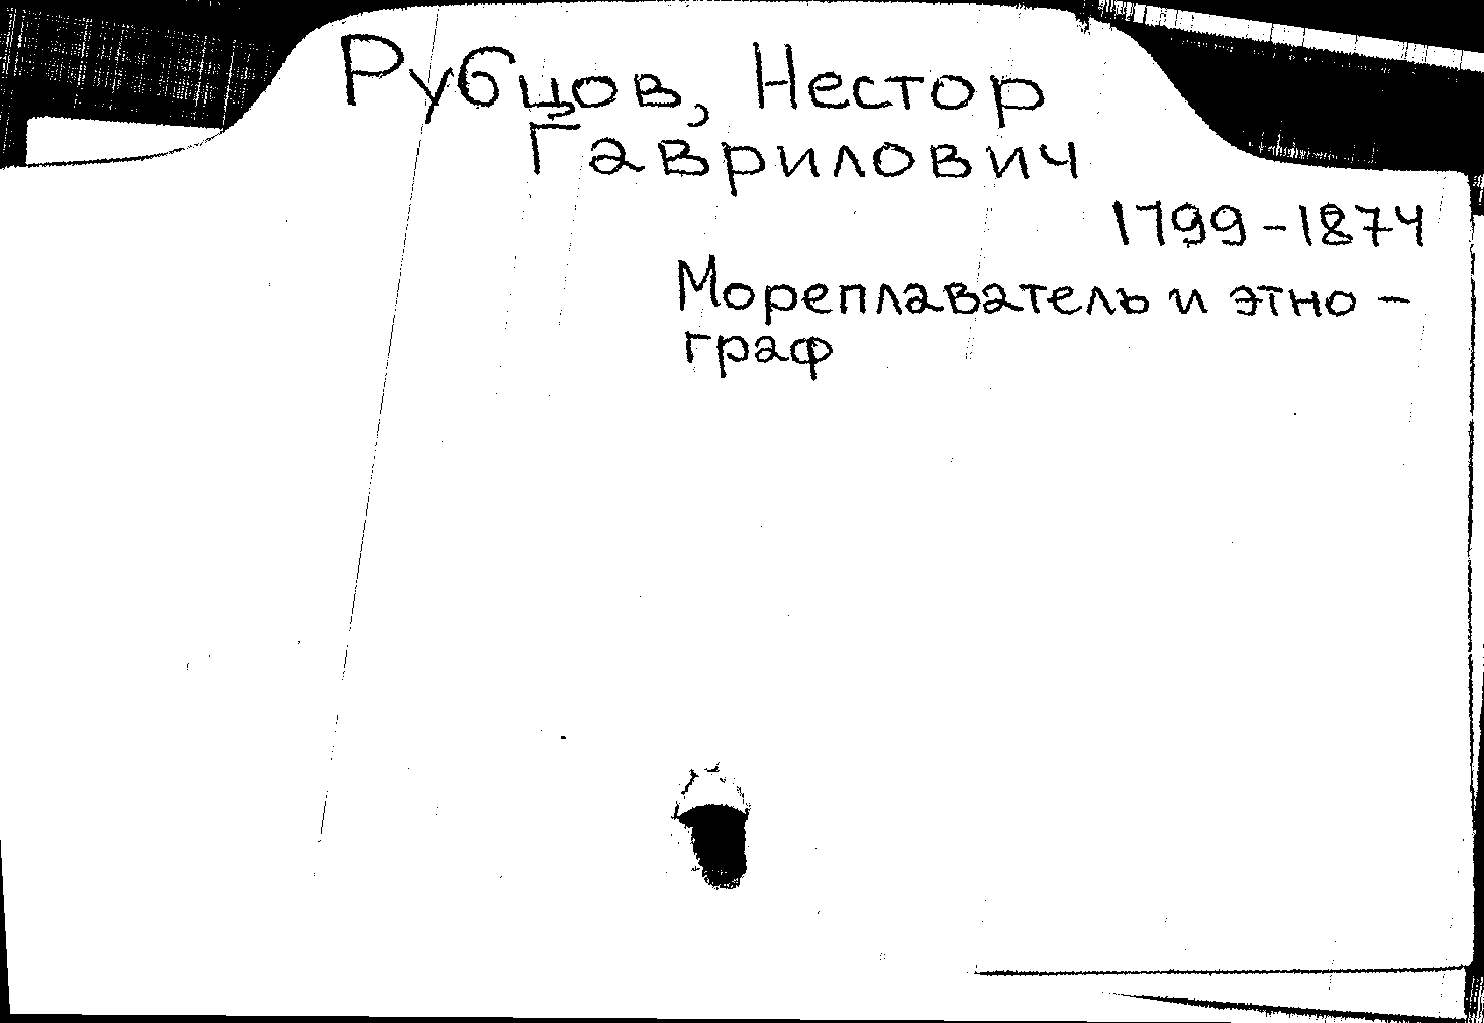 Рубцов, Нестор
Гаврилович
1799-1874
Мореплаватель и этно-
граф